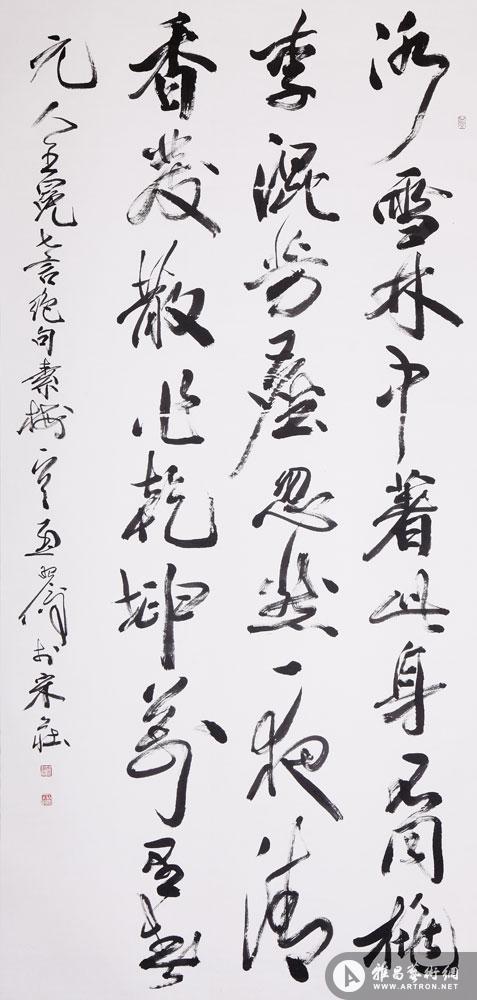 冰雪林中著此身不同桃
李混芳塵忽然一夜清
香發散作乾坤萬里春
元人王冕七言絕句素梅 於宋莊
雅昌藝術網
WWW.ARTRON.NET